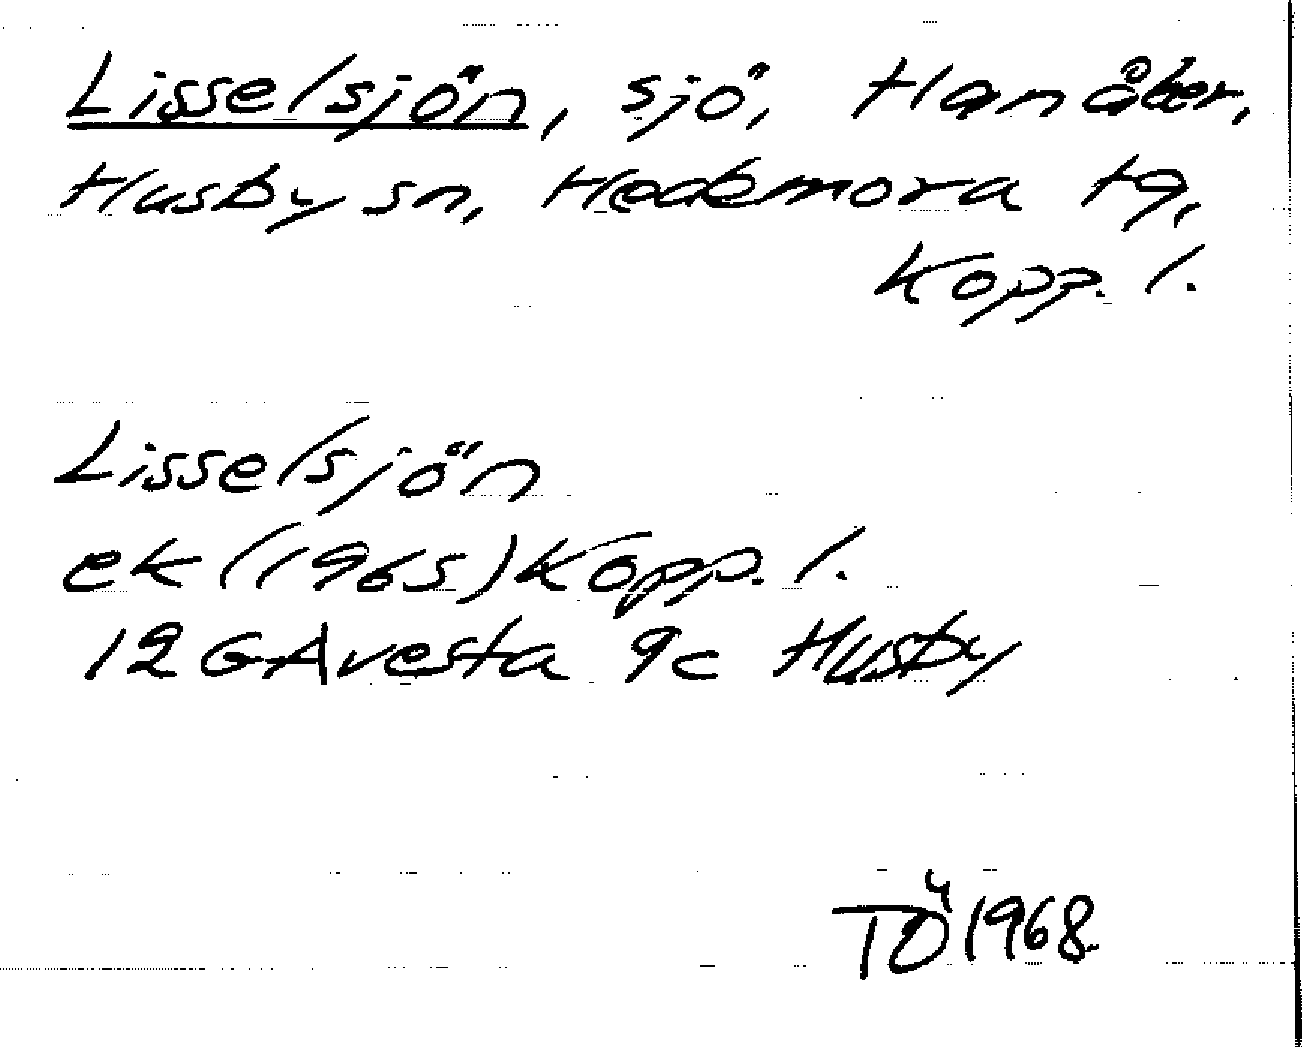 Lisselsjön, sjö, Hanåker,
Husby sn, Hedemora tg,
Kopp. l.
Lisselsjön
ek (1965) Kopp. l.
12 G Avesta 9c Husby
TÖ 1968